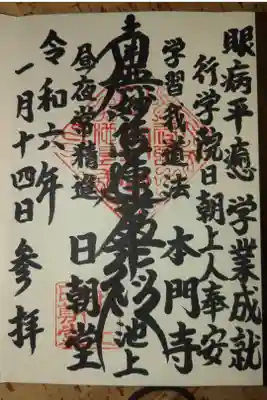 眼病平癒学業成就
行学院日朝上人奉安
学習我道法
本門寺
南無妙法蓮華経
池上
昼夜常精進
日朝堂
令和六年
一月十四日参拝